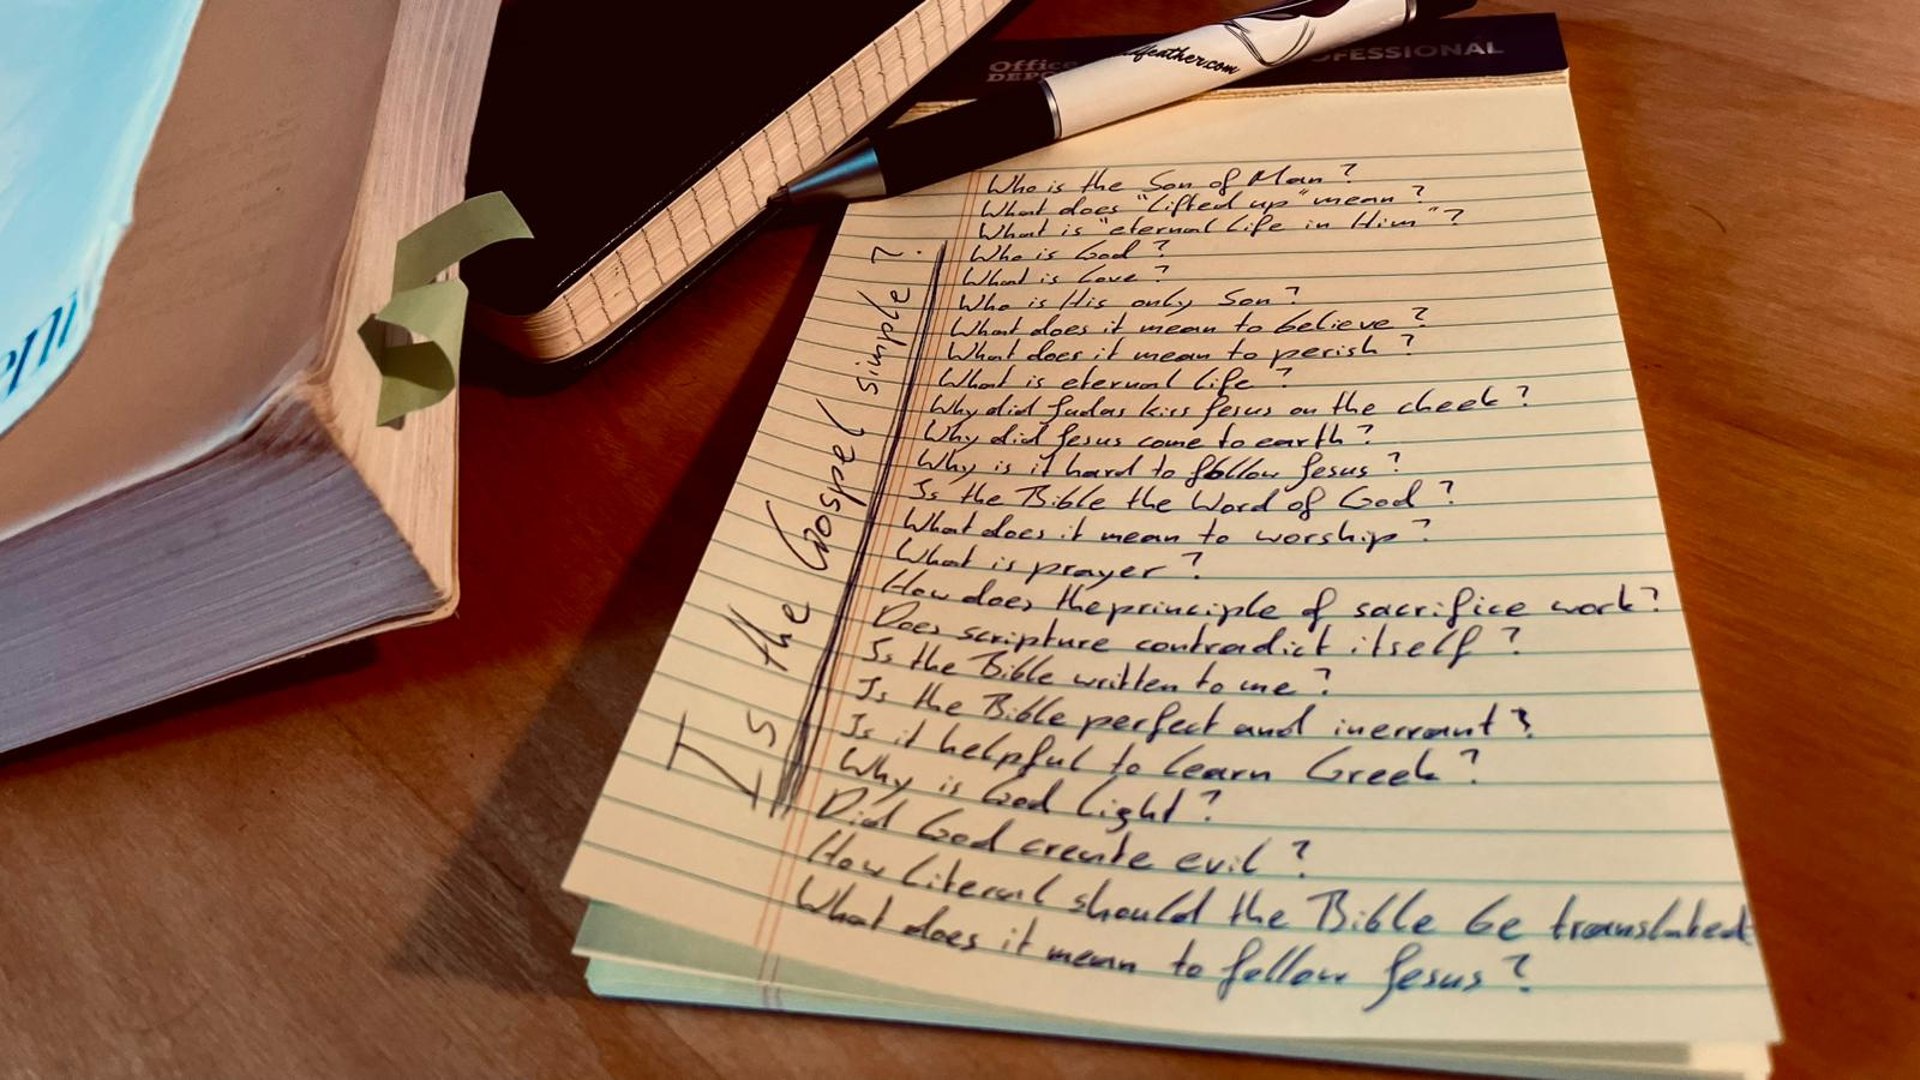 Office
DEPO
OFESSIONAL
dfeather.com
Who is the Son of Man?
What does "Lifted up" mean?
What is "eternal Life in Him"?
Who is God?
What is Love?
Who is His only Son?
What does it mean to believe?
What does it mean to perish?
What is eternal Life?
Why did Judas kiss Jesus on the cheek?
Why did Jesus come to earth?
Why is it hard to follow Jesus?
Is the Bible the Word of God?
What does it mean to worship?
What is prayer?
How does the principle of sacrifice work?
Does scripture contradict itself?
Is the Bible written to me?
Is the Bible perfect and inerrant?
Is it helpful to Learn Greek?
Why is God Light?
Did God create evil?
How Literal should the Bible be translated
What does it mean to follow Jesus?
Is the Gospel simple?